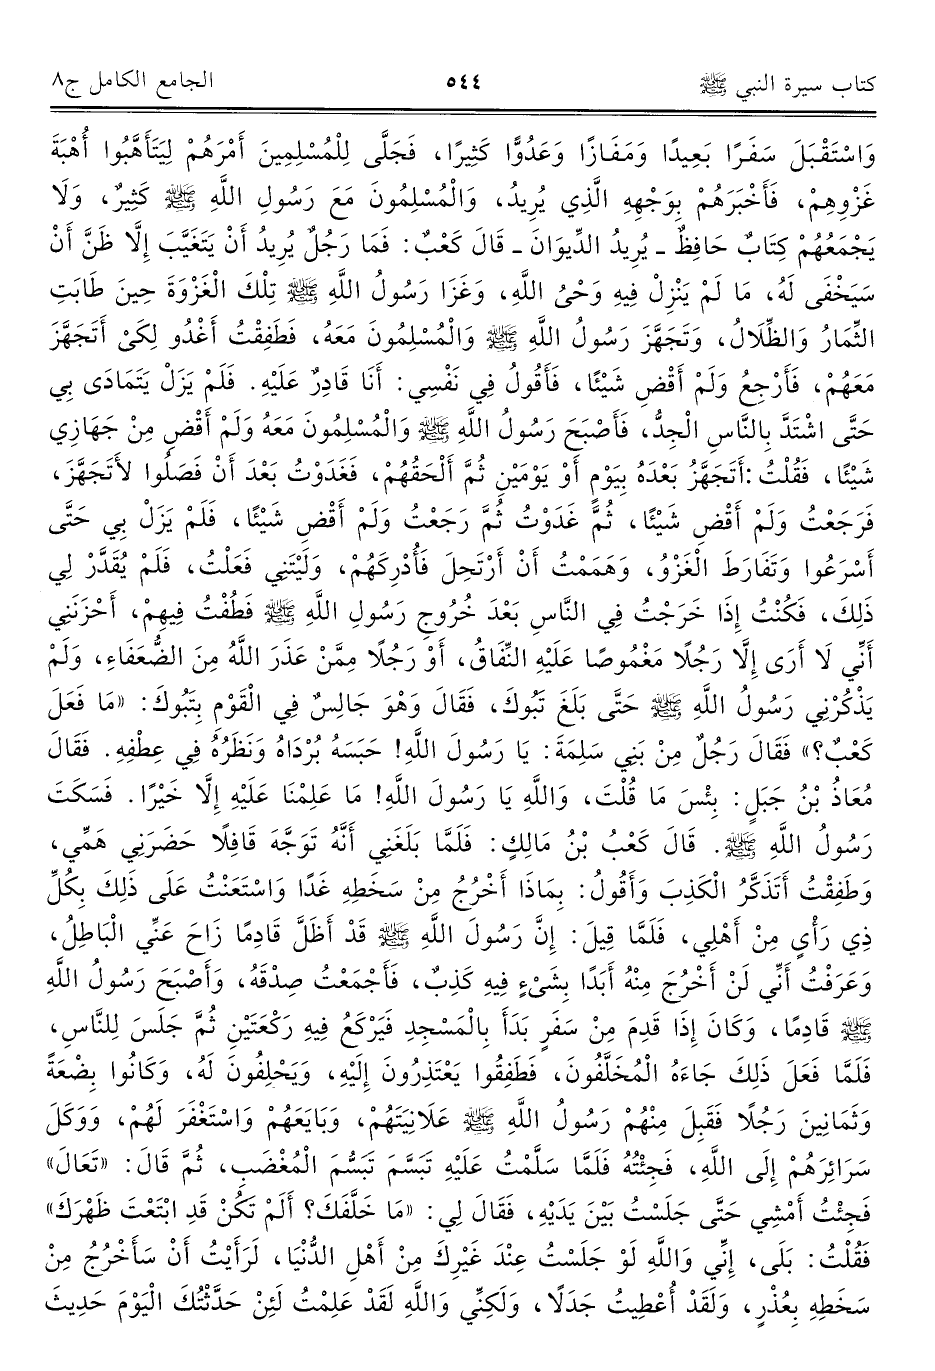 كتاب سيرة النبي ﷺ ٥٤٤ الجامع الكامل ج٨
وَاسْتَقْبَلَ سَفَرًا بَعِيدًا وَمَفَازًا وَعَدُوًّا كَثِيرًا، فَجَلَّى لِلْمُسْلِمِينَ أَمْرَهُمْ لِيَتَأَهَّبُوا أُهْبَةَ
غَزْوِهِمْ، فَأَخْبَرَهُمْ بِوَجْهِهِ الَّذِي يُرِيدُ، وَالْمُسْلِمُونَ مَعَ رَسُولِ اللَّهِ ﷺ كَثِيرٌ، وَلَا
يَجْمَعُهُمْ كِتَابٌ حَافِظٌ ـ يُرِيدُ الدِّيوَانَ ـ قَالَ كَعْبٌ: فَمَا رَجُلٌ يُرِيدُ أَنْ يَتَغَيَّبَ إِلَّا ظَنَّ أَنْ
سَيَخْفَى لَهُ، مَا لَمْ يَنْزِلْ فِيهِ وَحْيُ اللَّهِ، وَغَزَا رَسُولُ اللَّهِ ﷺ تِلْكَ الْغَزْوَةَ حِينَ طَابَتِ
الثِّمَارُ وَالظِّلَالُ، وَتَجَهَّزَ رَسُولُ اللَّهِ ﷺ وَالْمُسْلِمُونَ مَعَهُ، فَطَفِقْتُ أَغْدُو لِكَيْ أَتَجَهَّزَ
مَعَهُمْ، فَأَرْجِعُ وَلَمْ أَقْضِ شَيْئًا، فَأَقُولُ فِي نَفْسِي: أَنَا قَادِرٌ عَلَيْهِ. فَلَمْ يَزَلْ يَتَمَادَى بِي
حَتَّى اشْتَدَّ بِالنَّاسِ الْجِدُّ، فَأَصْبَحَ رَسُولُ اللَّهِ ﷺ وَالْمُسْلِمُونَ مَعَهُ وَلَمْ أَقْضِ مِنْ جَهَازِي
شَيْئًا، فَقُلْتُ: أَتَجَهَّزُ بَعْدَهُ بِيَوْمٍ أَوْ يَوْمَيْنِ ثُمَّ أَلْحَقُهُمْ، فَغَدَوْتُ بَعْدَ أَنْ فَصَلُوا لأَتَجَهَّزَ،
فَرَجَعْتُ وَلَمْ أَقْضِ شَيْئًا، ثُمَّ غَدَوْتُ ثُمَّ رَجَعْتُ وَلَمْ أَقْضِ شَيْئًا، فَلَمْ يَزَلْ بِي حَتَّى
أَسْرَعُوا وَتَفَارَطَ الْغَزْوُ، وَهَمَمْتُ أَنْ أَرْتَحِلَ فَأُدْرِكَهُمْ، وَلَيْتَنِي فَعَلْتُ، فَلَمْ يُقَدَّرْ لِي
ذَلِكَ، فَكُنْتُ إِذَا خَرَجْتُ فِي النَّاسِ بَعْدَ خُرُوجِ رَسُولِ اللَّهِ ﷺ فَطُفْتُ فِيهِمْ، أَحْزَنَنِي
أَنِّي لَا أَرَى إِلَّا رَجُلًا مَغْمُوصًا عَلَيْهِ النِّفَاقُ، أَوْ رَجُلًا مِمَّنْ عَذَرَ اللَّهُ مِنَ الضُّعَفَاءِ، وَلَمْ
يَذْكُرْنِي رَسُولُ اللَّهِ ﷺ حَتَّى بَلَغَ تَبُوكَ، فَقَالَ وَهْوَ جَالِسٌ فِي الْقَوْمِ بِتَبُوكَ: «مَا فَعَلَ
كَعْبٌ؟» فَقَالَ رَجُلٌ مِنْ بَنِي سَلِمَةَ: يَا رَسُولَ اللَّهِ! حَبَسَهُ بُرْدَاهُ وَنَظَرُهُ فِي عِطْفِهِ. فَقَالَ
مُعَاذُ بْنُ جَبَلٍ: بِئْسَ مَا قُلْتَ، وَاللَّهِ يَا رَسُولَ اللَّهِ! مَا عَلِمْنَا عَلَيْهِ إِلَّا خَيْرًا. فَسَكَتَ
رَسُولُ اللَّهِ ﷺ. قَالَ كَعْبُ بْنُ مَالِكٍ: فَلَمَّا بَلَغَنِي أَنَّهُ تَوَجَّهَ قَافِلًا حَضَرَنِي هَمِّي،
وَطَفِقْتُ أَتَذَكَّرُ الْكَذِبَ وَأَقُولُ: بِمَاذَا أَخْرُجُ مِنْ سَخَطِهِ غَدًا وَاسْتَعَنْتُ عَلَى ذَلِكَ بِكُلِّ
ذِي رَأْيٍ مِنْ أَهْلِي، فَلَمَّا قِيلَ: إِنَّ رَسُولَ اللَّهِ ﷺ قَدْ أَظَلَّ قَادِمًا زَاحَ عَنِّي الْبَاطِلُ،
وَعَرَفْتُ أَنِّي لَنْ أَخْرُجَ مِنْهُ أَبَدًا بِشَيْءٍ فِيهِ كَذِبٌ، فَأَجْمَعْتُ صِدْقَهُ، وَأَصْبَحَ رَسُولُ اللَّهِ
ﷺ قَادِمًا، وَكَانَ إِذَا قَدِمَ مِنْ سَفَرٍ بَدَأَ بِالْمَسْجِدِ فَيَرْكَعُ فِيهِ رَكْعَتَيْنِ ثُمَّ جَلَسَ لِلنَّاسِ،
فَلَمَّا فَعَلَ ذَلِكَ جَاءَهُ الْمُخَلَّفُونَ، فَطَفِقُوا يَعْتَذِرُونَ إِلَيْهِ، وَيَحْلِفُونَ لَهُ، وَكَانُوا بِضْعَةً
وَثَمَانِينَ رَجُلًا فَقَبِلَ مِنْهُمْ رَسُولُ اللَّهِ ﷺ عَلَانِيَتَهُمْ، وَبَايَعَهُمْ وَاسْتَغْفَرَ لَهُمْ، وَوَكَلَ
سَرَائِرَهُمْ إِلَى اللَّهِ، فَجِئْتُهُ فَلَمَّا سَلَّمْتُ عَلَيْهِ تَبَسَّمَ تَبَسُّمَ الْمُغْضَبِ، ثُمَّ قَالَ: «تَعَالَ»
فَجِئْتُ أَمْشِي حَتَّى جَلَسْتُ بَيْنَ يَدَيْهِ، فَقَالَ لِي: «مَا خَلَّفَكَ؟ أَلَمْ تَكُنْ قَدِ ابْتَعْتَ ظَهْرَكَ»
فَقُلْتُ: بَلَى، إِنِّي وَاللَّهِ لَوْ جَلَسْتُ عِنْدَ غَيْرِكَ مِنْ أَهْلِ الدُّنْيَا، لَرَأَيْتُ أَنْ سَأَخْرُجُ مِنْ
سَخَطِهِ بِعُذْرٍ، وَلَقَدْ أُعْطِيتُ جَدَلًا، وَلَكِنِّي وَاللَّهِ لَقَدْ عَلِمْتُ لَئِنْ حَدَّثْتُكَ الْيَوْمَ حَدِيثَ